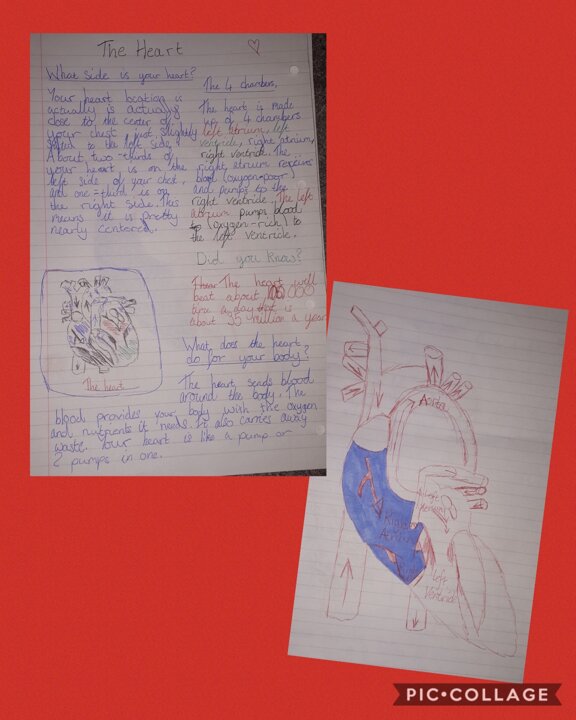 The Heart
What side is your heart?
Your heart location is
actually is actually
close to the center of
your chest, just slightly
to the left side.
About two-thirds of
your heart is on the
left side of your chest,
and one-third is on
the right side. This
means it is pretty
nearly centered.
The heart
The 4 chambers.
The heart is made
up of 4 chambers
left atrium, left
ventricle, right atrium,
right ventricle. The
right atrium receives
blood (oxygen-poor)
and pumps to the
right ventricle. The left
atrium pumps blood
(oxygen-rich) to
the left ventricle.
Did you know?
The heart will
beat about 100 000
time a day that is
about 35 million a year
What does the heart
do for your body?
The heart sends blood
around the body. The
blood provides your body with the oxygen
and nutrients it needs. It also carries away
waste. Your heart is like a pump or
2 pumps in one.
Aorta
Right
Atrium
Left
Ventricle
PIC•COLLAGE